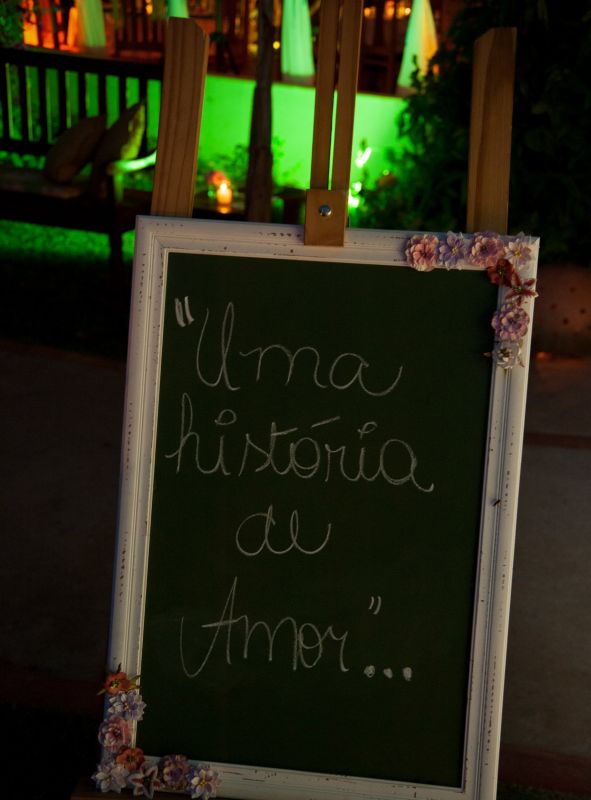 "Uma
história
de
Amor"...